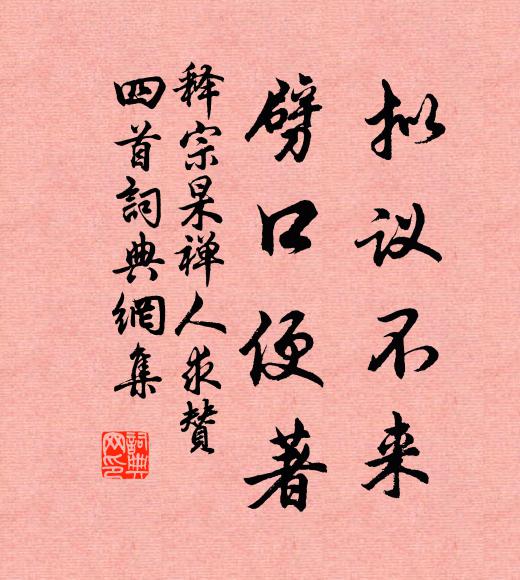 拟议不来
劈口便著
释宗杲禅人求赞
四首詞典網集
詞典
网印